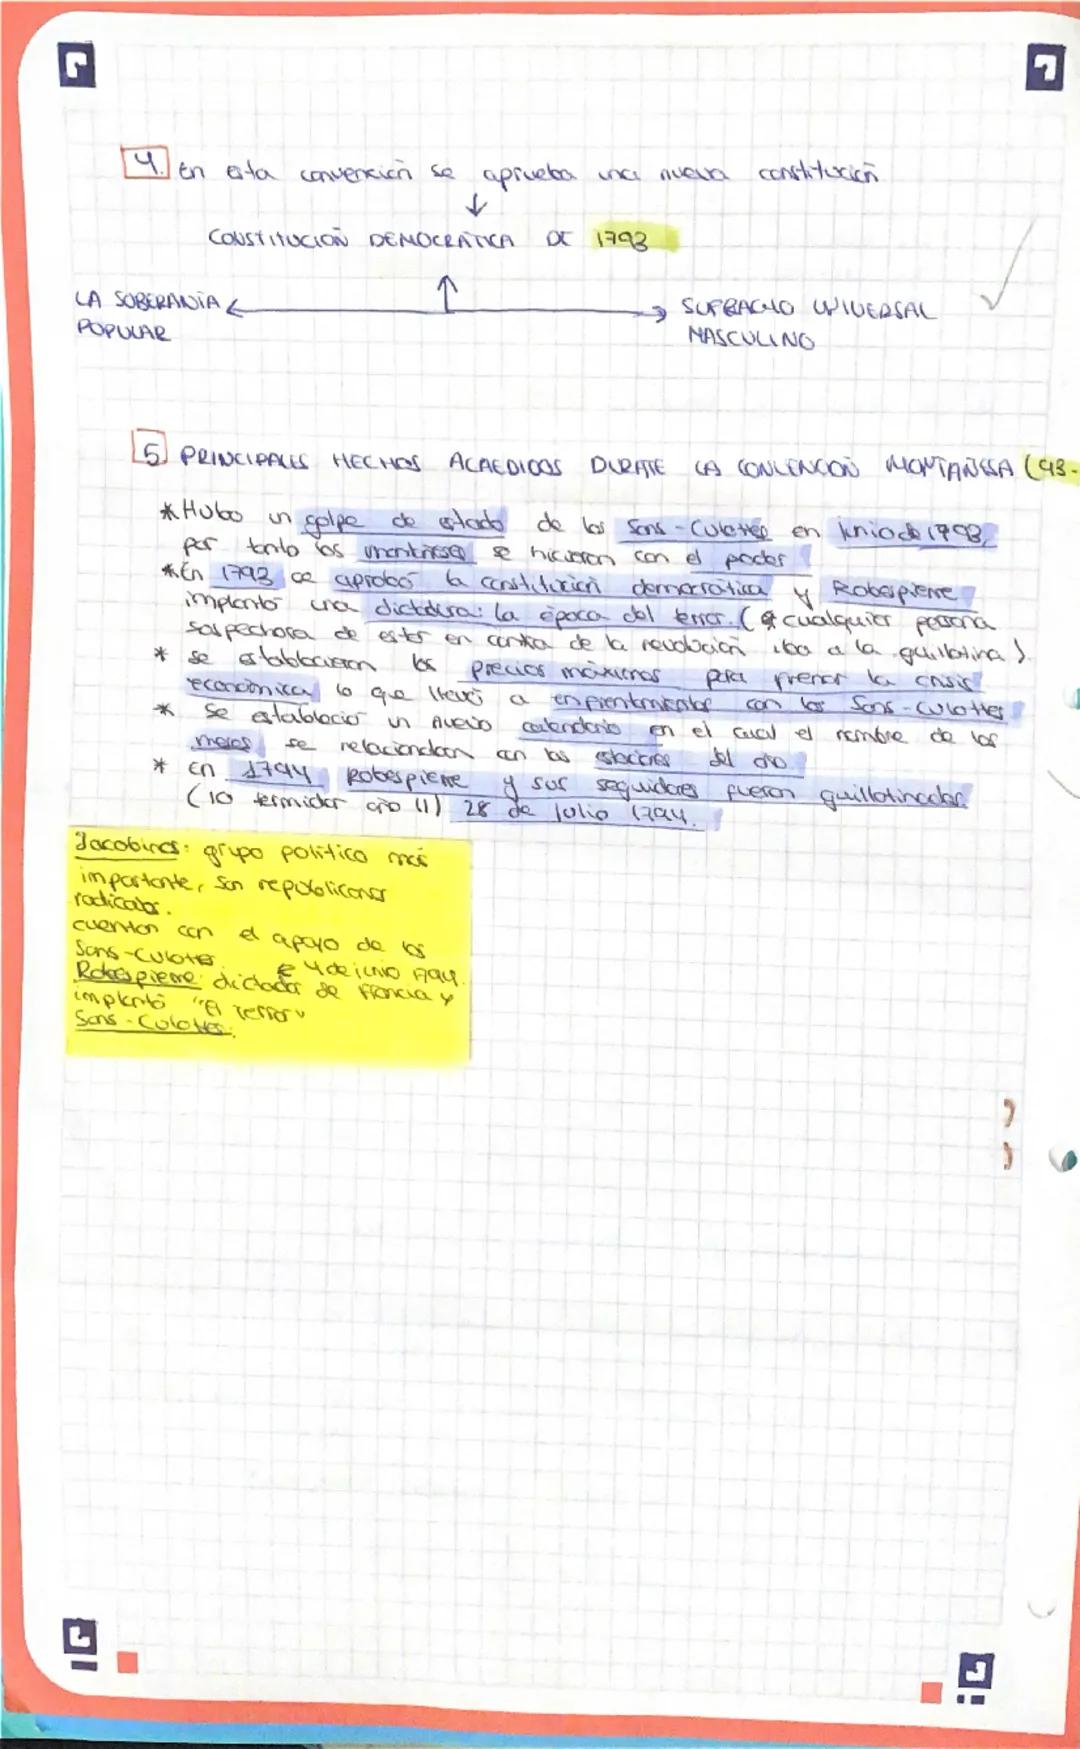 4. En esta convención se aprueba una nueva constitución
↓
CONSTITUCIÓN DEMOCRÁTICA DE 1793
LA SOBERANÍA POPULAR ← ↑ → SUFRAGIO UNIVERSAL MASCULINO
5. PRINCIPALES HECHOS ACAEDIDOS DURATE LA CONVENCIÓN MONTAÑESA (93-
* Hubo un golpe de estado de los Sans-Culottes en junio de 1793,
por tanto los montañeses se hicieron con el poder
* En 1793 se aprobó la constitución democrática y Robespierre
implantó una dictadura: la época del terror. (cualquier persona
sospechosa de estar en contra de la revolución iba a la guillotina).
* se establecieron los precios máximos para frenar la crisis
económica lo que llevó a enfrentamientos con los Sans-culottes
* Se estableció un nuevo calendario en el cual el nombre de los
meses se relacionaban con las estaciones del año
* En 1794 Robespierre y sus seguidores fueron guillotinados.
(10 termidor año II) 28 de Julio 1794.
Jacobinos: grupo político más
importante, son republicanos
radicales.
cuentan con el apoyo de los
Sans-Culottes.
4 de junio 1794.
Robespierre: dictador de Francia y
implantó "El Terror"
Sans-Culottes: